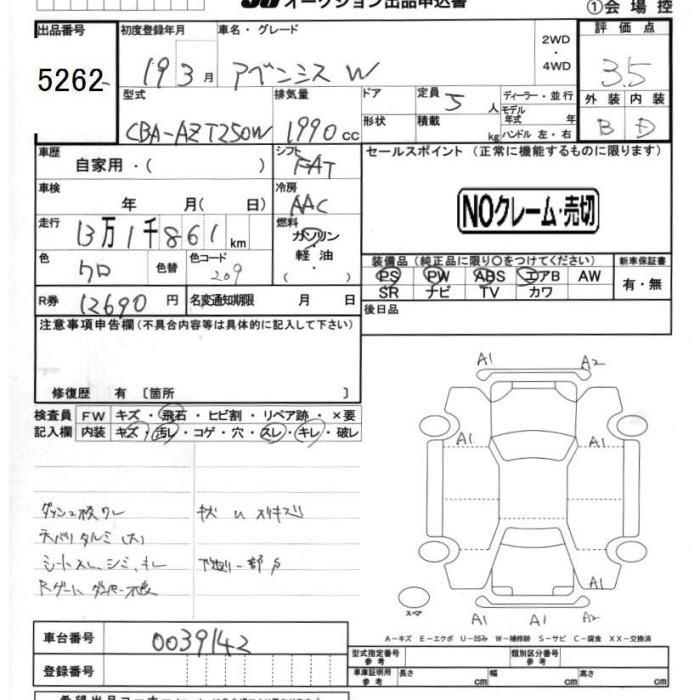 オークション出品申込書
①会場控
出品番号 初度登録年月 車名・グレード 2WD・4WD 評価点
5262 19 3月 アベンシス W 3.5
型式 排気量 ドア 定員 5人 ディーラー・並行 外装 内装
CBA-AZT250W 1990cc 形状 積載 kg モデル年式 年 ハンドル 左・右 B D
車歴 自家用・( ) シフト FAT セールスポイント（正常に機能するものに限ります）
車検 年 月( 日) 冷房 AAC NOクレーム・売切
走行 13万1千861km 燃料 ガソリン・軽油・( )
色 クロ 色替 色コード 209
装備品（純正品に限り〇をつけてください） 新車保証書
PS PW ABS エアB AW 有・無
SR ナビ TV カワ
R券 12690円 名変通知期限 月 日 後日品
注意事項申告欄（不具合内容等は具体的に記入して下さい）
修復歴 有 〔箇所 〕
検査員 FW キズ・飛石・ヒビ割・リペア跡・×要
記入欄 内装 キズ・汚レ・コゲ・穴・スレ・キレ・破レ
A1 A2
A1 A1
ダッシュ板ワレ
天バリタルミ(大)
シートスレ、シミ、キレ
Rゲートダンパー不良
下廻リ一部サ
スペア
A1 A1 A2
A-キズ E-エクボ U-凹み W-補修跡 S-サビ C-腐食 XX-交換済
車台番号 0039142
登録番号
型式指定番号 参考 類別区分番号 参考
車庫証明用 参考 長さ cm 幅 cm 高さ cm